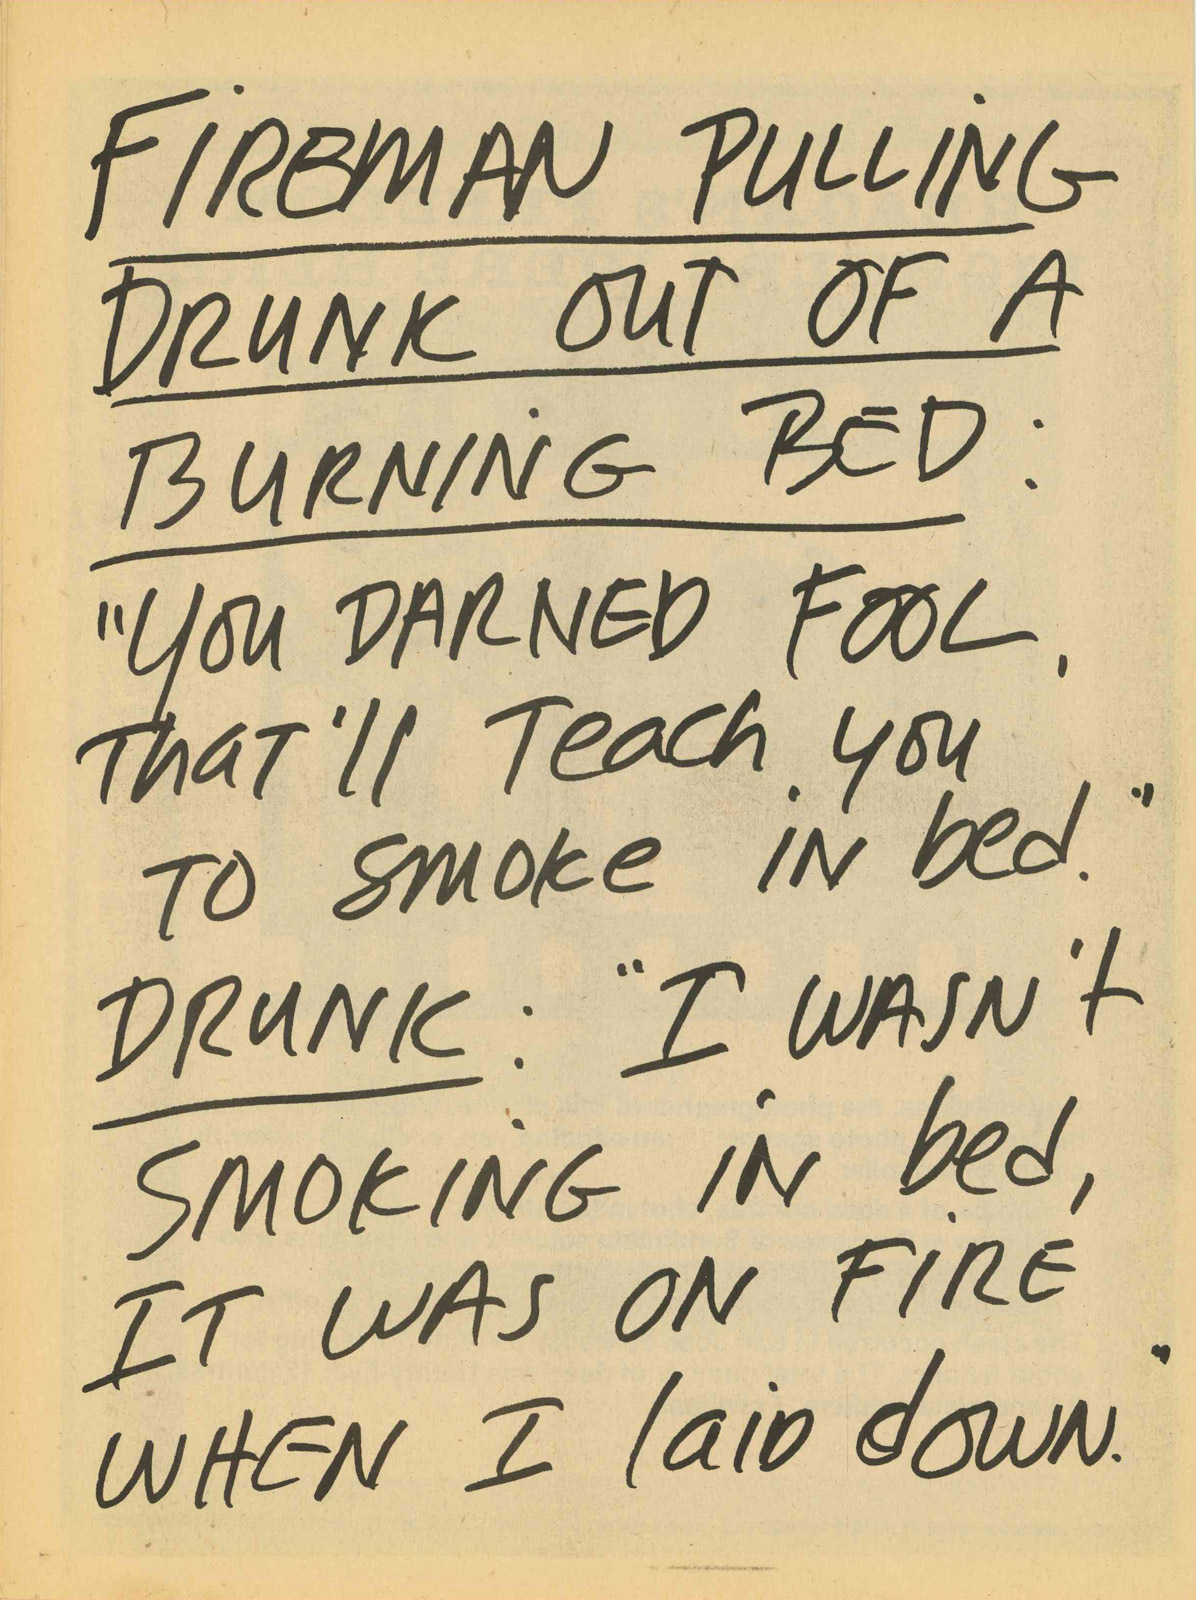 FIREMAN PULLING
DRUNK OUT OF A
BURNING BED:
"YOU DARNED FOOL,
THAT'll Teach you
TO smoke iN bed."
DRUNK: "I WASN't
SMOKiNG iN bed,
IT WAS ON FiRE
WHEN I laiD dOWN."